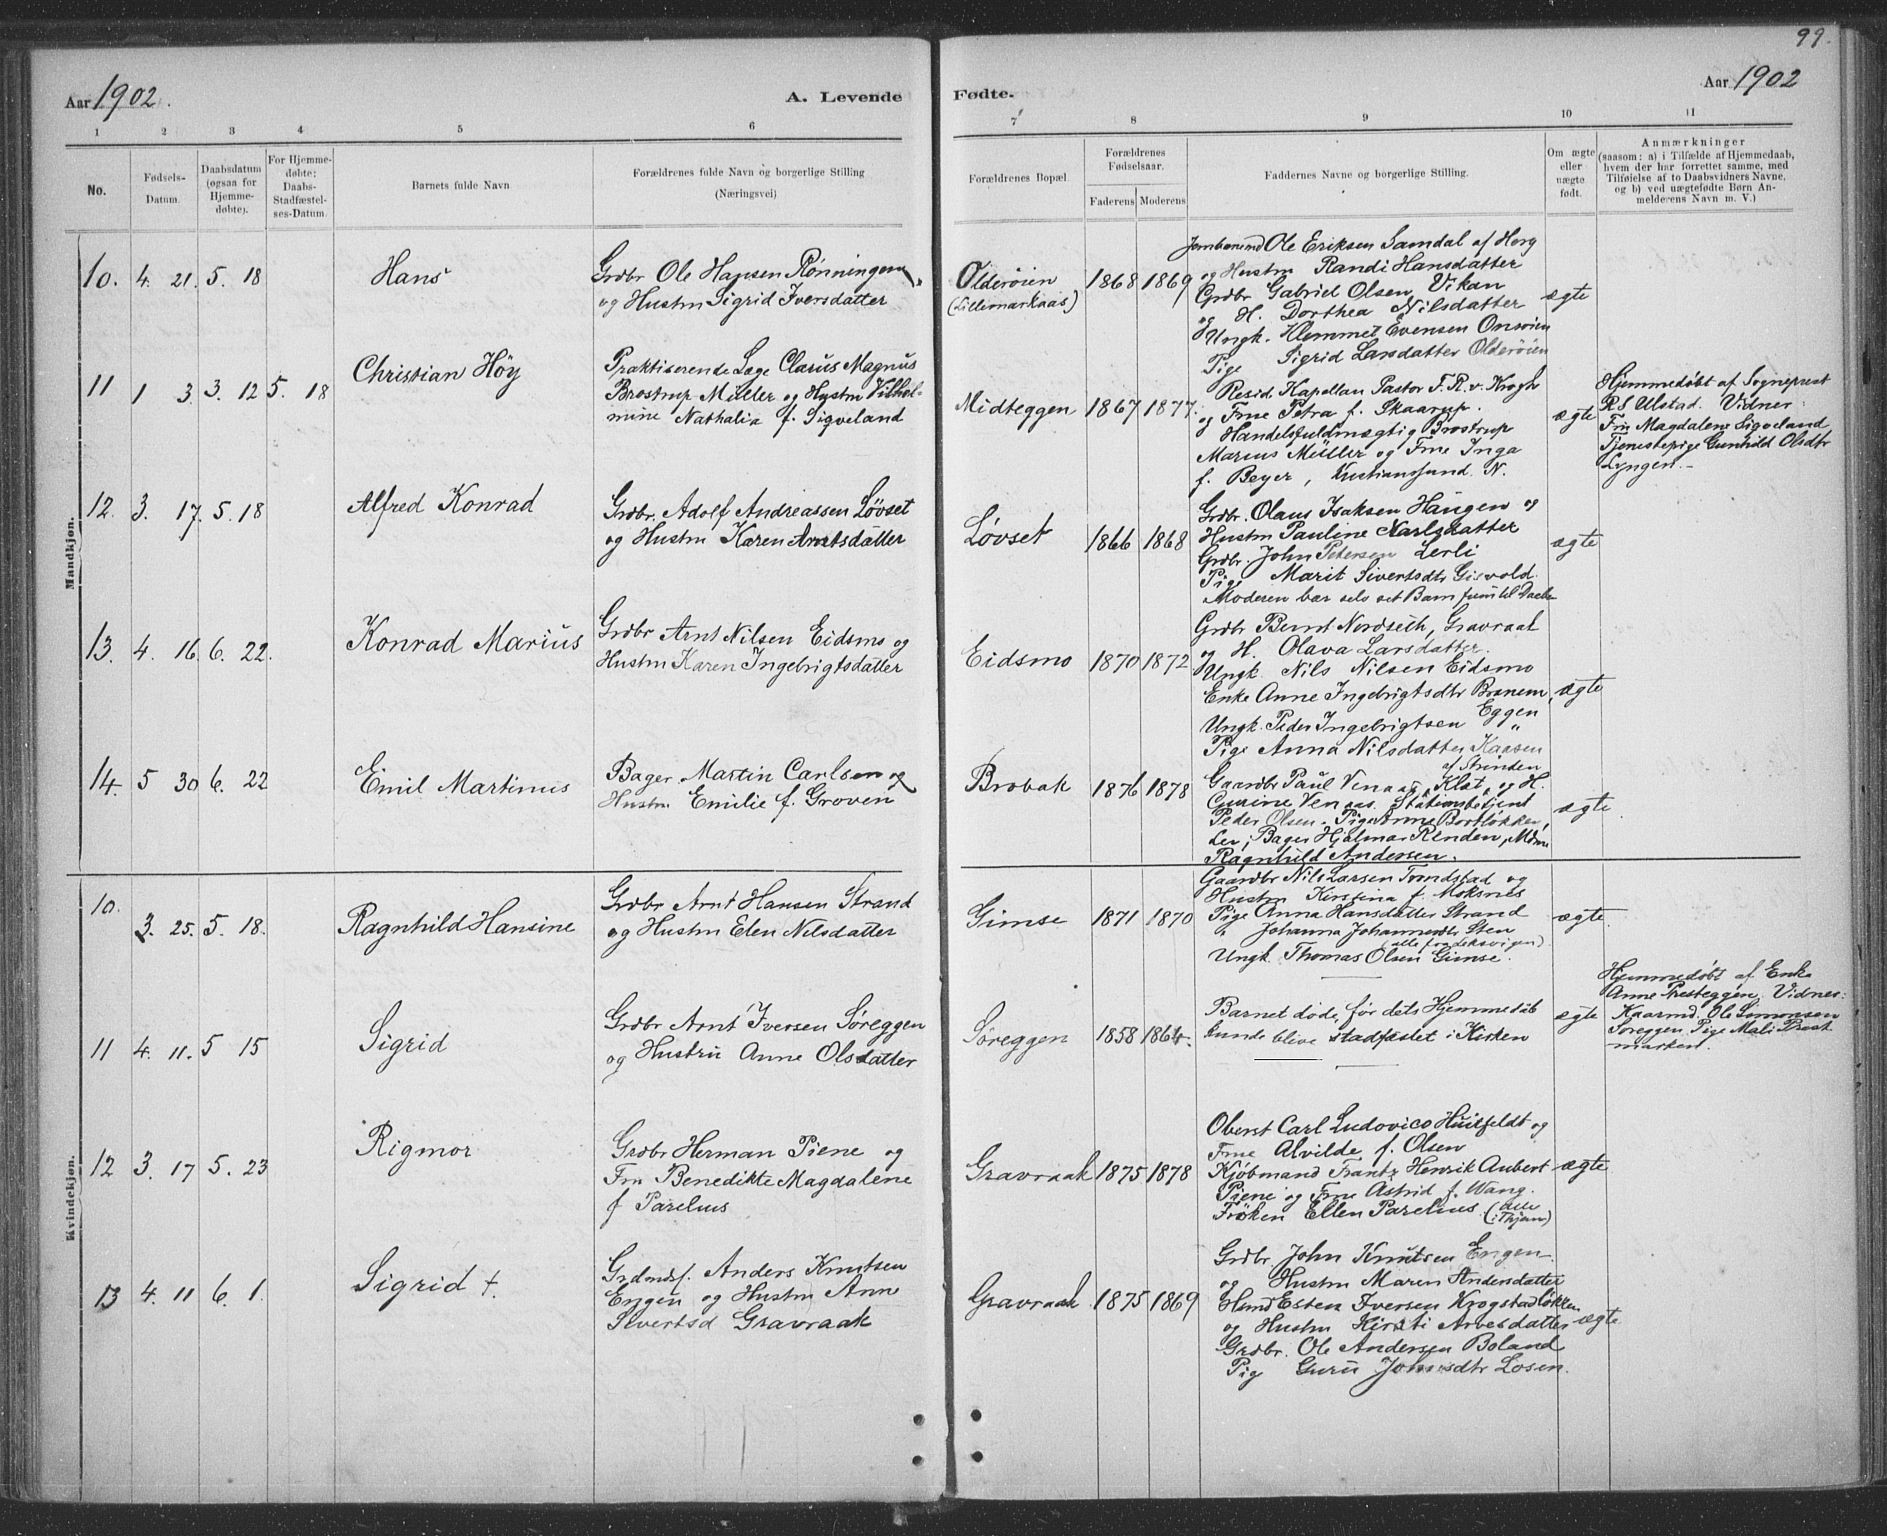 99.
Aar 1902.
A. Levende Fødte.
Aar 1902
1 2 3 4 5 6 7 8 9 10 11
No.
Fødsels-Datum.
Daabsdatum (ogsaa for Hjemme-døbte).
For Hjemme-døbte: Daabs-Stadfæstel-ses-Datum.
Barnets fulde Navn
Forældrenes fulde Navn og borgerlige Stilling (Næringsvei)
Forældrenes Bopæl.
Forældrenes Fødselsaar.
Faderens Moderens
Faddernes Navne og borgerlige Stilling.
Om ægte eller uægte født.
Anmærkninger (saasom: a) i Tilfælde af Hjemmedaab, hvem der har forrettet samme, med Tilføielse af to Daabsvidners Navne, og b) ved uægtefødte Børn An-melderens Navn m. V.)
Mandkjøn.
10. 4. 21. 5. 18
Hans
Grdbr Ole Hansen Rønningen
og Hustm Sigrid Iversdatter
Olderøien
(Lillemarkaas)
1868 1869
Ole Eriksen Samdal af Horg
og Hustm Randi Hansdatter
Grdbr Gabriel Olsen Vikan
og H. Dorthea Nilsdatter
Ungk. Klemmet Evensen Onsøien
Pige Sigrid Larsdatter Olderøien
ægte
11 1 3 3. 12 5. 18
Christian Höy
Praktiserende Læge Clarus Magnus
Brostrup Müller og Hustm Vilhel-
mine Nathalia f. Sigveland
Midteggen
1867 1877.
Resid Kapellan Pastor F. R. v. Krogh
og Frue Petra f. Skaarup.
Handelsfuldmægtig Brostrup
Marius Müller og Frue Inga
f. Beyer, Kristianssund N.
ægte
Hjemmedøbt af Sogneprest
R S Ulstad. Vidner:
Frn Magdalene Sigveland
Tjenestepige Gunhild Olsdtr
Lyngen.-
12. 3. 17. 5. 18
Alfred Konrad
Grdbr. Adolf Andreassen Løvset
og Hustm Karen Arntsdatter
Løvset
1866 1868
Grdbr. Olaus Isaksen Haugen og
Hustm Pauline Karlsdatter
Grdbr. John Petersen Lerli
Pige Marit Sivertsdtr Gisvold.
Moderen bar selv sit Barn frem til Daaben
ægte
13. 4. 16. 6. 22.
Konrad Marius
Grdbr Arnt Nilsen Eidsmo og
Hustm Karen Ingebrigtsdatter
Eidsmo
1870 1872
Grdbr Bernt Nordseth, Gravraak
og H. Olava Larsdatter.
Ungk. Nils Nilsen Eidsmo
Enke Anne Ingebrigtsdtr Bronem,
Ungk. Peder Ingebrigtsen Eggen
Pige Anna Nilsdatter Kaasen "
af Strinden
ægte
14. 5 30 6. 22
Emil Martinus
Bager Martin Carlsen og
Hustm Emilie f. Groven
Brobak
1876 1878
Gaardbr Paul Venaas, Klæt, og H.
Gurine Venaas. Stationsbetjent
Peder Olsen. Pige Anne Bortløkken,
Ler, Bager Hjalmar Renden,
Ragnhild Andersen.
ægte
Kvindekjøn.
10. 3. 25. 5. 18.
Ragnhild Hansine
Grdbr Arnt Hansen Strand
og Hustm Elen Nilsdatter
Gimse
1871 1870
Gaardbr Nils Larsen Trondstad og
Hustm Kirstina f. Moksnes
Pige Anna Hansdatter Strand
" Johanna Johannesdtr Sten
(alle fra
Ungk. Thomas Olsen Gimse.
ægte
11 4. 11. 5 15
Sigrid
Grdbr Arnt Iversen Søreggen
og Hustru Anne Olsdatter
Søreggen
1858 1864.
Barnet døde, før dets Hjemmedåb
kunde blive stadfæstet i Kirken
ægte
Hjemmedøbt af Enke
Anne Presteggen. Vidner:
Kaarmd. Ole Simonsen
Søreggen, Pige Mali Prest
marken.
12 3. 17 5. 23
Rigmor
Grdbr Herman Piene og
Fru Benedikte Magdalene
f Parelius
Gravraak
1875 1878
Oberst Carl Ludovico Huitfeldt og
Frue Alvilde f. Olsen
Kjøbmand Frantz Henrik Aubert
Piene og Frue Astrid f. Wang.
Frøken Ellen Parelius (Alle
i Thjem)
ægte
13 4. 11 6. 1.
Sigrid †.
Grdmdsf. Anders Knutsen
Engen og Hustm Anne
Sivertsd Gravraak
Gravraak
1875 1869
Grdbr. John Knutsen Engen
og Hustm Maren Andersdatter
Hsmd Esten Iversen Krogstadløkken
og Hustm Kirsti Arnesdatter
Grdbr. Ole Andersen Boland
Pig Guru Jonsdtr Losen.
ægte